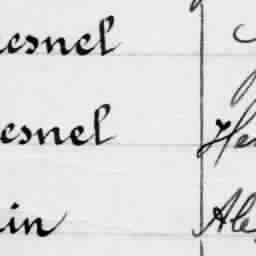 esnel
esnel He
in Ale